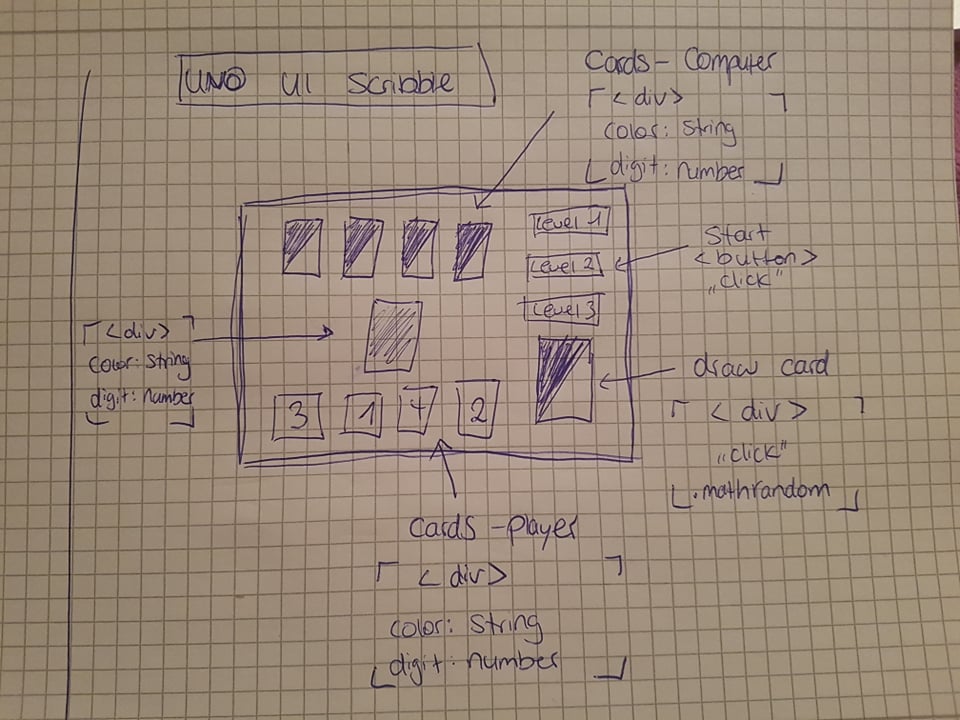 UNO UI Scribble
Cards - Computer
<div>
color: String
digit: number
Level 1
Level 2
Level 3
Start
<button>
„click"
<div>
color: String
digit: number
draw card
<div>
„click"
.mathrandom
3 1 4 2
Cards - Player
<div>
color: String
digit: number